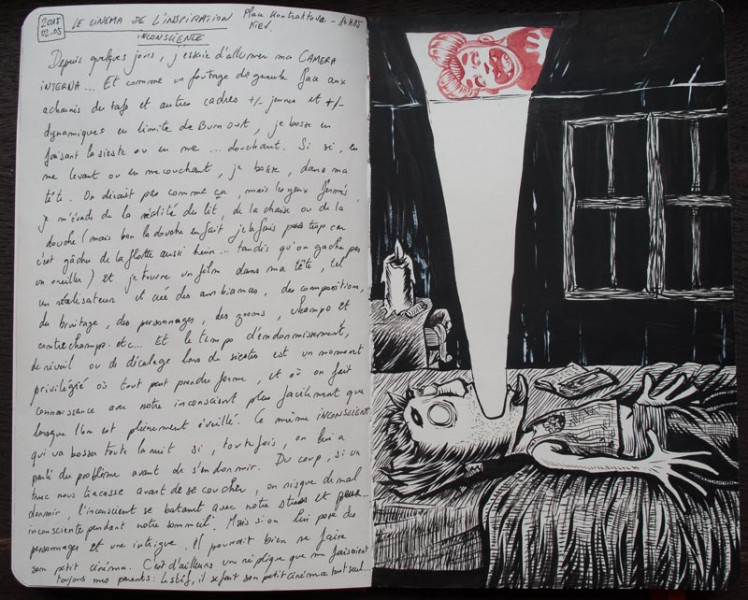 2018
02.05
LE CINEMA DE L'INSPIRATION
INCONSCIENTE
Kiev.
Depuis quelques jours, j'essaie d'allumer ma CAMERA
INTERNA... Et comme un foutage de gueule face aux
acharnés du taf et autres cadres +/- jeunes et +/-
dynamiques en limite de Burn out, je bosse en
faisant la sieste ou en me ... douchant. Si si, en
me levant ou en me couchant, je bosse, dans ma
tête. On dirait pas comme ça, mais les yeux fermés,
je m'évade de la réalité du lit, de la chaise ou de la
douche (mais bon la douche en fait je le fais pas trop car
c'est gâcher de la flotte aussi hein... tandis qu'on gâche pas
un oreiller) et je tourne un film dans ma tête, tel
un réalisateur et crée des ambiances, des compositions,
du bruitage, des personnages, des zooms, champo et
contrechamps. etc... Et le temps d'endormissement,
de réveil ou de décalage lors de siestes est un moment
privilégié où tout peut prendre forme, et où on fait
connaissance avec notre inconscient plus facilement que
lorsque l'on est pleinement éveillé. Ce même INCONSCIENT
qui va bosser toute la nuit si, toutefois, on lui a
parlé du problème avant de s'endormir. Du coup, si un
truc nous tracasse avant de se coucher, on risque de mal
dormir, l'inconscient se battant avec notre stress et
inconsciente pendant notre sommeil. Mais si on lui pose des
personnages et une intrigue, il pourrait bien se faire
son petit cinéma. C'est d'ailleurs une réplique que me faisaient
toujours mes parents : il se fait son petit cinéma tout seul...